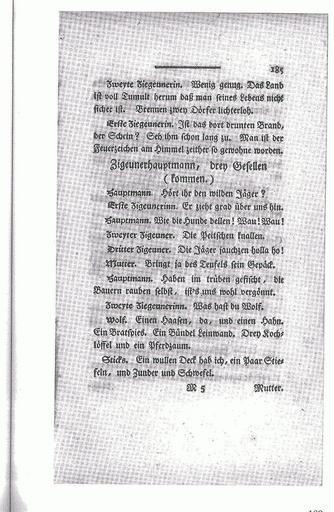 185
Zweyte Ziegeunerin. Wenig genug. Das Land
ist voll Tumult herum daß man seines Lebens nicht
sicher ist. Brennen zwey Dörfer lichterloh.
Erste Ziegeunerin. Ist das dort drunten Brand,
der Schein? Seh ihm schon lang zu. Man ist der
Feuerzeichen am Himmel zeither so gewohne worden.
Zigeunerhauptmann, drey Gesellen
(kommen.)
Hauptmann. Hört ihr den wilden Jäger?
Erste Zigeunerinn. Er zieht grad über uns hin.
Hauptmann. Wie die Hunde bellen! Wau! Wau!
Zweyter Zigeuner. Die Peitschen knallen.
Dritter Zigeuner. Die Jäger jauchzen holla ho!
Mutter. Bringt ja des Teufels sein Gepäck.
Hauptmann. Haben im trüben gefischt, die
Bauern rauben selbst, ists uns wohl vergönnt.
Zweyte Ziegeunerinn. Was hast du Wolf.
Wolf. Einen Haasen, da, und einen Hahn.
Ein Bratspies. Ein Bündel Leinwand. Drey Koch-
löffel und ein Pferdzaum.
Sticks. Ein wullen Deck hab ich, ein Paar Stie-
feln, und Zunder und Schwefel.
M 5 Mutter.